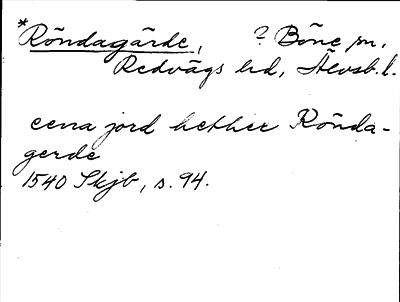 *Röndagärde, ? Böne sn,
Redvägs hd, Älvsb. l.
eena jord hether Rönda-
gerde
1540 Skjb, s. 94.